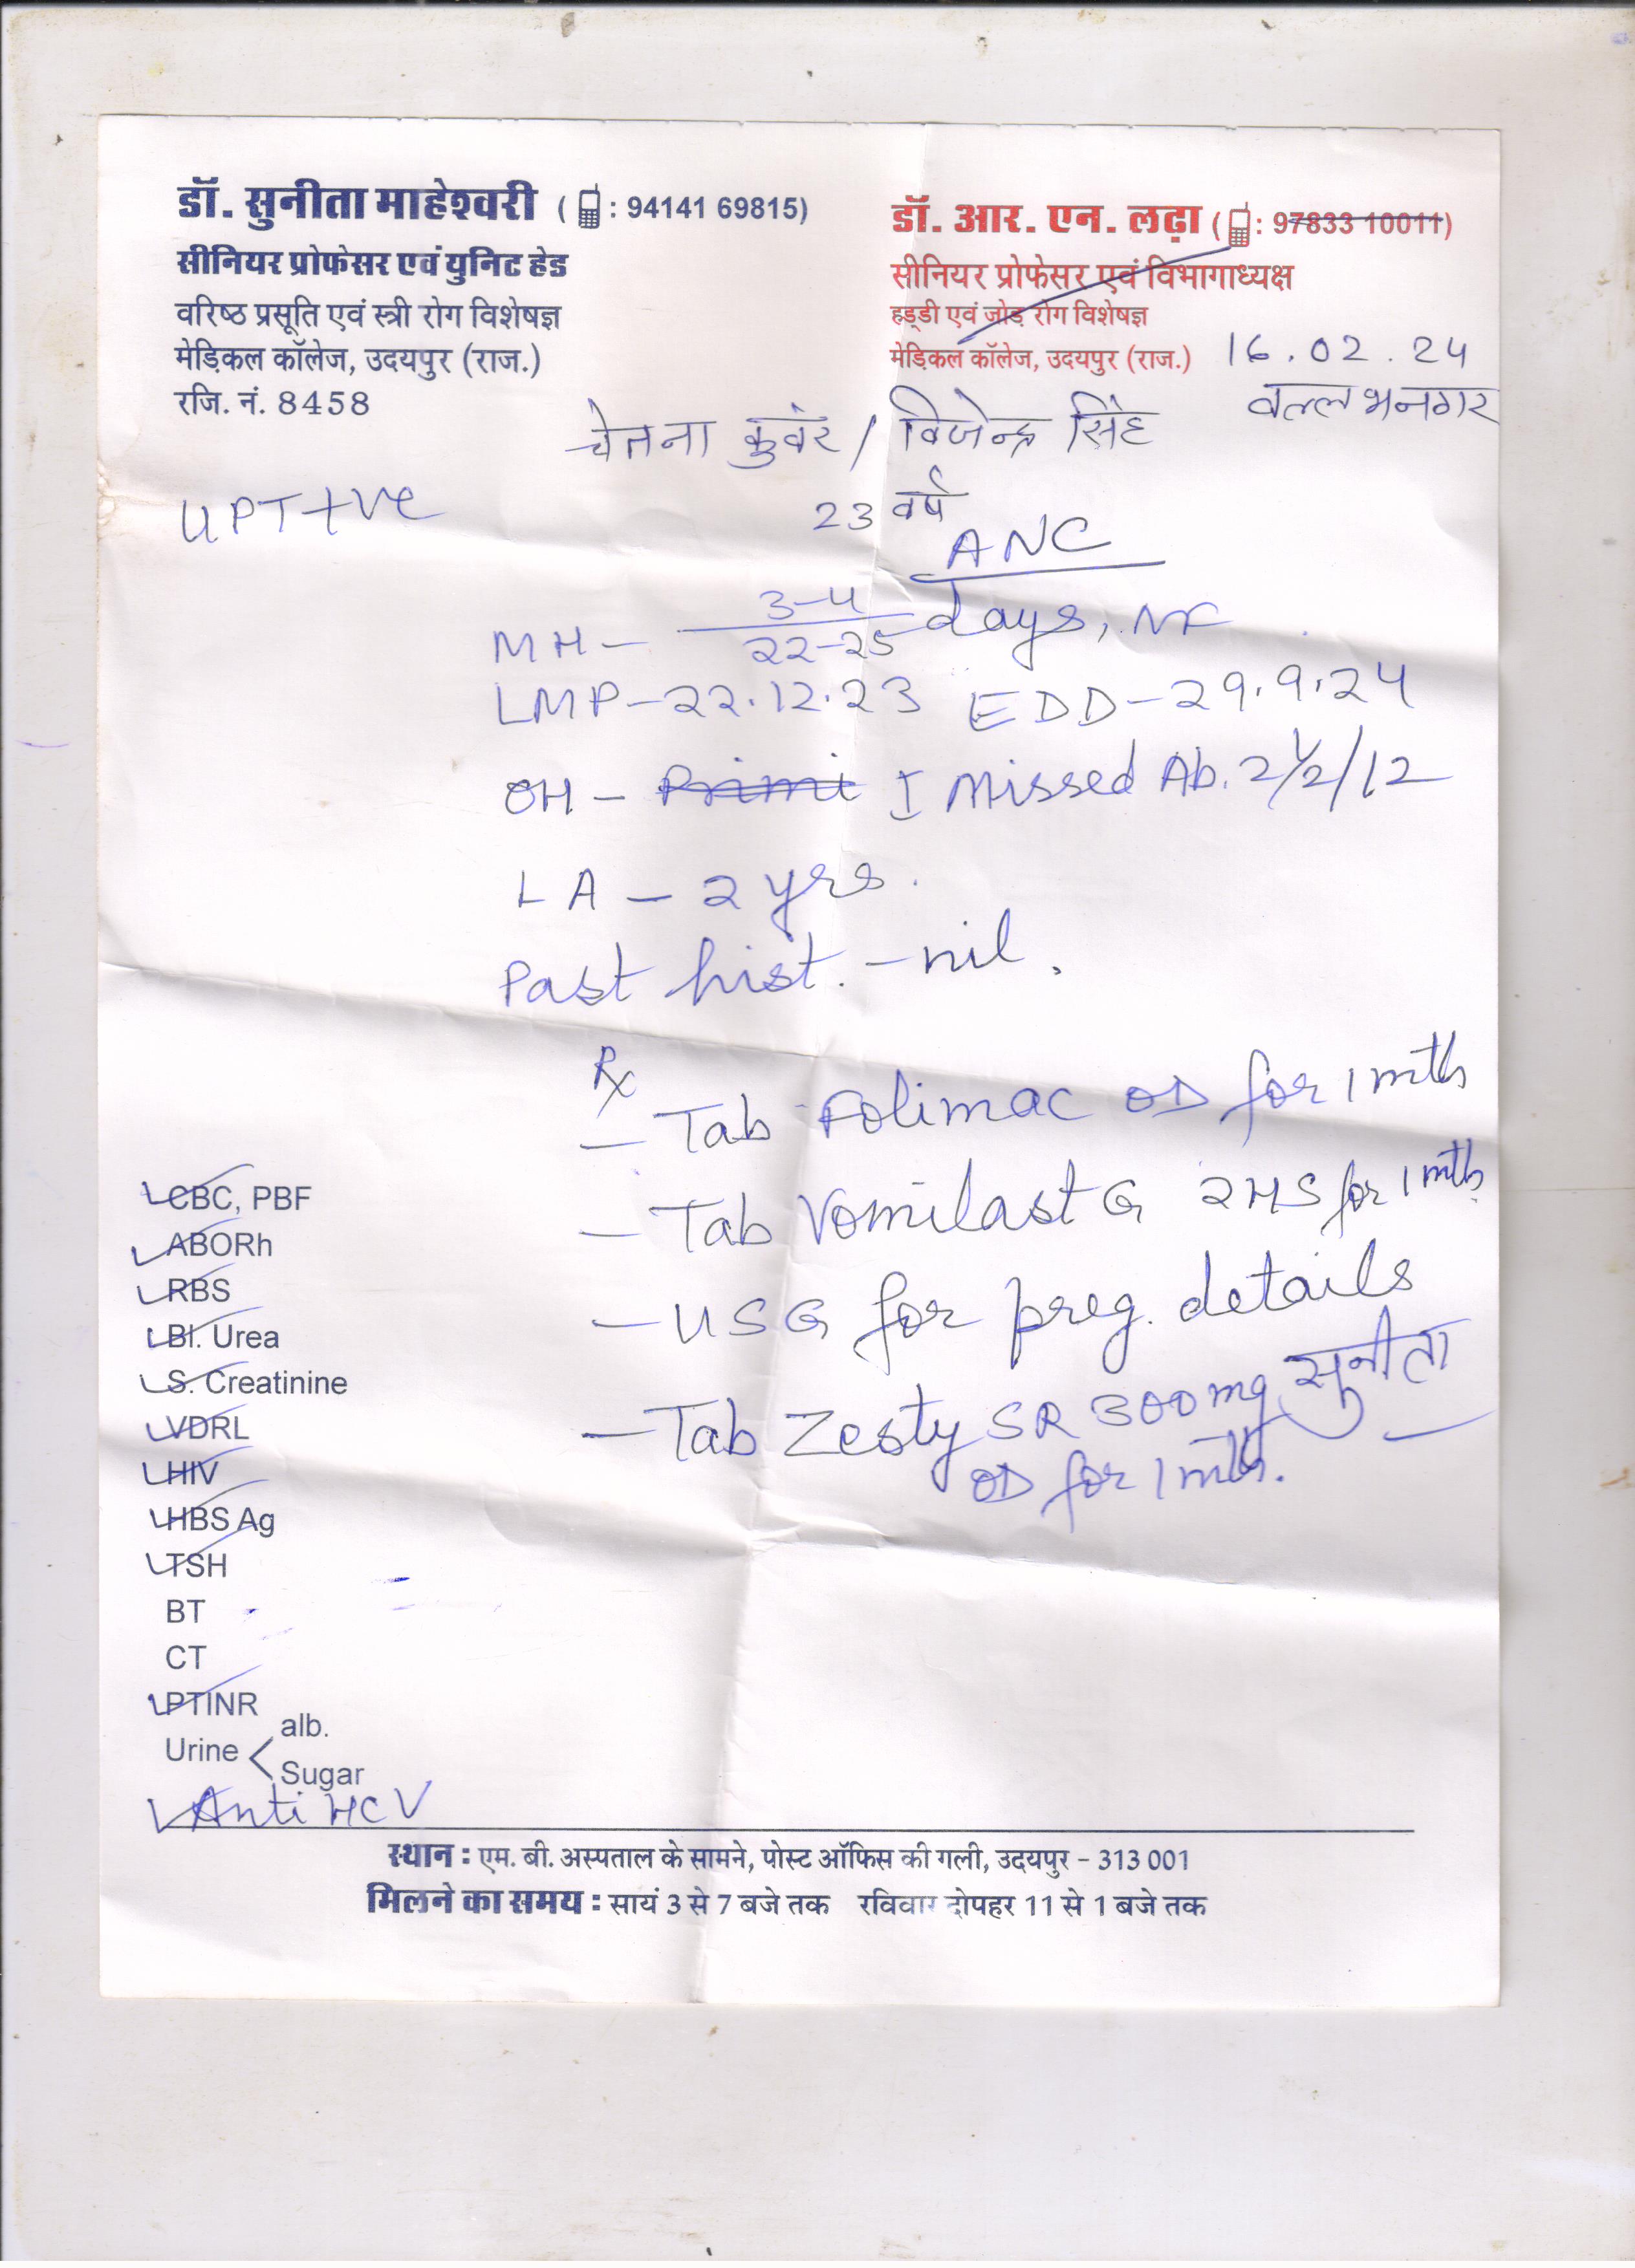 डॉ. सुनीता माहेश्वरी ( : 94141 69815)
सीनियर प्रोफेसर एवं युनिट हेड
वरिष्ठ प्रसूति एवं स्त्री रोग विशेषज्ञ
मेड़िकल कॉलेज, उदयपुर (राज.)
रजि. नं. 8458
डॉ. आर. एन. लढ़ा ( : 97833 10011)
सीनियर प्रोफेसर एवं विभागाध्यक्ष
हड्डी एवं जोड़ रोग विशेषज्ञ
मेड़िकल कॉलेज, उदयपुर (राज.)
16.02.24
वल्लभनगर
चेतना कुवंर / विजेन्द्र सिंह
23 वर्ष
UPT+ve
ANC
MH - 3-4/22-25 days, NF
LMP-22.12.23 EDD-29.9.24
OH - Primi I Missed Ab. 2½/12
LA - 2 yrs.
Past hist. - nil.
Rx
- Tab Folimac OD for 1 mth
- Tab Vomilast G 2HS for 1 mth
- USG for preg. details
- Tab Zesty SR 300mg
OD for 1 mth.
सुनीता
CBC, PBF
ABORh
RBS
Bl. Urea
S. Creatinine
VDRL
HIV
HBS Ag
TSH
BT
CT
PTINR
Urine < alb.
Sugar
Anti HCV
स्थान : एम. बी. अस्पताल के सामने, पोस्ट ऑफिस की गली, उदयपुर - 313 001
मिलने का समय : सायं 3 से 7 बजे तक रविवार दोपहर 11 से 1 बजे तक